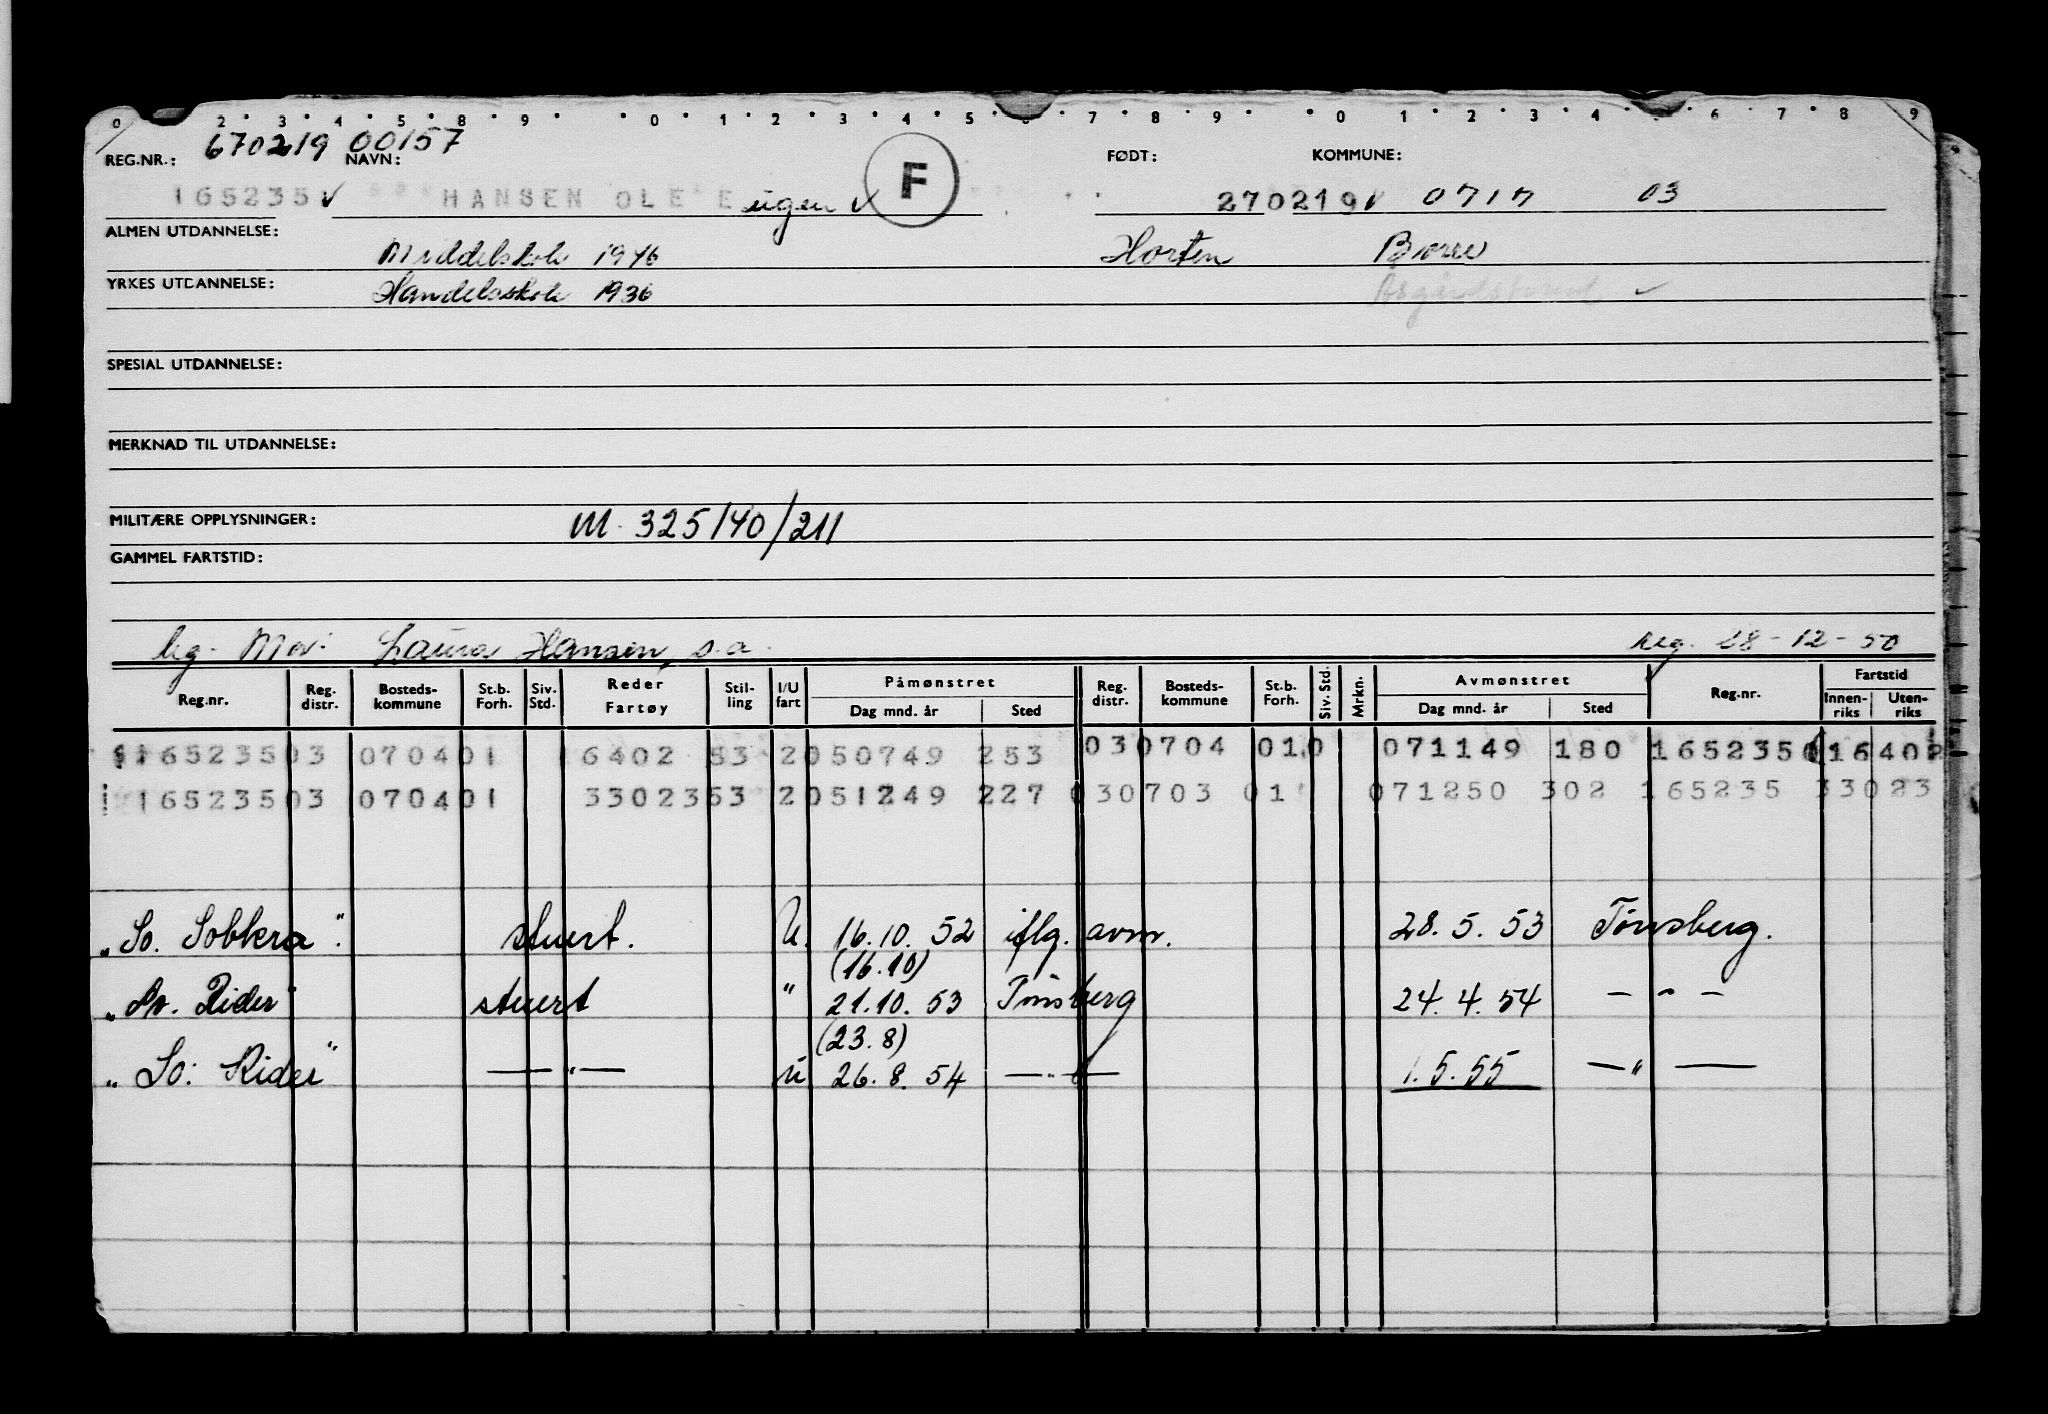 0 2 3 4 5 8 9 0 1 2 3 4 5 6 7 8 9 0 1 2 3 4 6 7 8 9
670219 00157
REG.NR.: NAVN: FØDT: KOMMUNE:
165235 ✓ HANSEN OLE Eugen ✓ F 270219 ✓ 0717 03
ALMEN UTDANNELSE: Middelskole 1946 Horten Borre
YRKES UTDANNELSE: Handelsskole 1936 Åsgårdstrand ✓
SPESIAL UTDANNELSE:
MERKNAD TIL UTDANNELSE:
MILITÆRE OPPLYSNINGER: M. 325140/211
GAMMEL FARTSTID:
Mor: Laura Hansen, s.a. reg. 28-12-50
Reg.nr. Reg. distr. Bosteds- kommune St.b. Forh. Siv. Std. Reder Fartøy Stil- ling I/U fart Påmønstret Dag mnd. år Sted Reg. distr. Bosteds- kommune St.b. Forh. Siv. Std. Mrkn. Avmønstret Dag mnd. år Sted Reg.nr. Fartstid Innen- riks Uten- riks
16523503 070401 6402 53 2050749 253 030704 010 071149 180 165235 16402
16523503 070401 3302353 2051249 227 030703 01 071250 302 165235 33023
"So. Sobkra". stuert. U. 16.10. 52 iflg. avm. 28. 5. 53 Tønsberg.
(16.10)
"So. Rider" stuert " 21.10. 53 Tønsberg 24. 4. 54 - " -
(23.8)
"So: Rider" —"— u 26. 8. 54 —"— 1. 5. 55 —"—